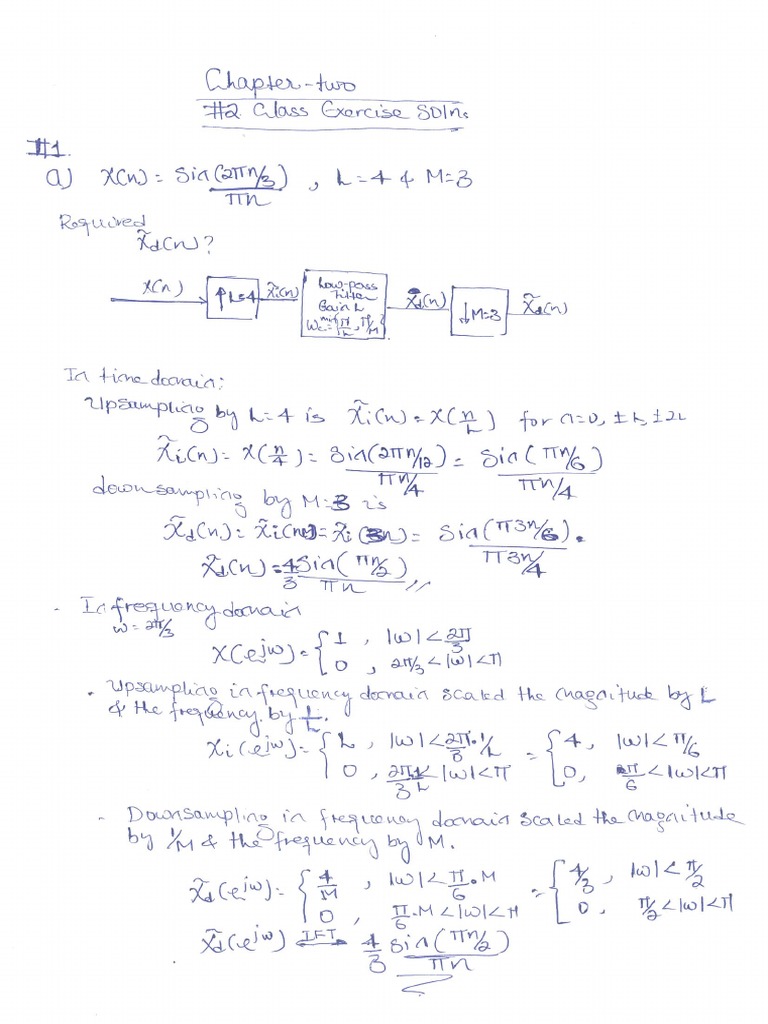 Chapter-two
#2 Class Exercise Soln.
#1.
a) x(n) = Sin(2πn/3)/πn , L=4 & M=3
Required
x̃d(n)?
x(n) ↑L=4 x̃i(n) Low-pass Filter Gain L ωc=min{π/L, π/M} x̃i(n) ↓M=3 x̃d(n)
In time domain:
Upsampling by L=4 is x̃i(n) = x(n/L) for n=0, ±L, ±2L
x̃i(n) = x(n/4) = Sin(2πn/12)/πn/4 = Sin(πn/6)/πn/4
downsampling by M=3 is
x̃d(n) = x̃i(nM) = x̃i(3n) = Sin(π3n/6)/π3n/4 .
x̃d(n) = 4/3 Sin(πn/2)/πn //
- In frequency domain
w = 2π/3
X(e^jω) = { 1 , |ω| < 2π/3
0 , 2π/3 < |ω| < π
. Upsampling in frequency domain scaled the magnitude by L
& the frequency by 1/L.
Xi(e^jω) = { L , |ω| < 2π/3 · 1/L = { 4 , |ω| < π/6
0 , 2π/3 1/L < |ω| < π 0 , π/6 < |ω| < π
- Downsampling in frequency domain scaled the magnitude
by 1/M & the frequency by M.
X̃d(e^jω) = { 4/M , |ω| < π/6 · M = { 4/3 , |ω| < π/2
0 , π/6 · M < |ω| < π 0 , π/2 < |ω| < π
X̃d(e^jω) IFT 4/3 sin(πn/2)/πn